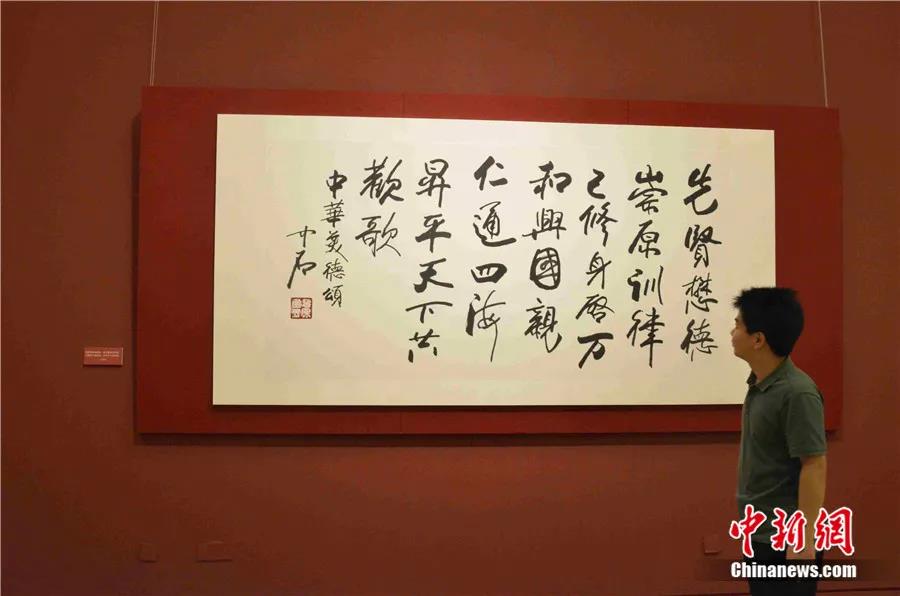 先賢懋德
崇原训律
己修身啓万
和興國親
仁通四海
昇平天下共
歡歌
中華美德頌
中石
中新網
Chinanews.com